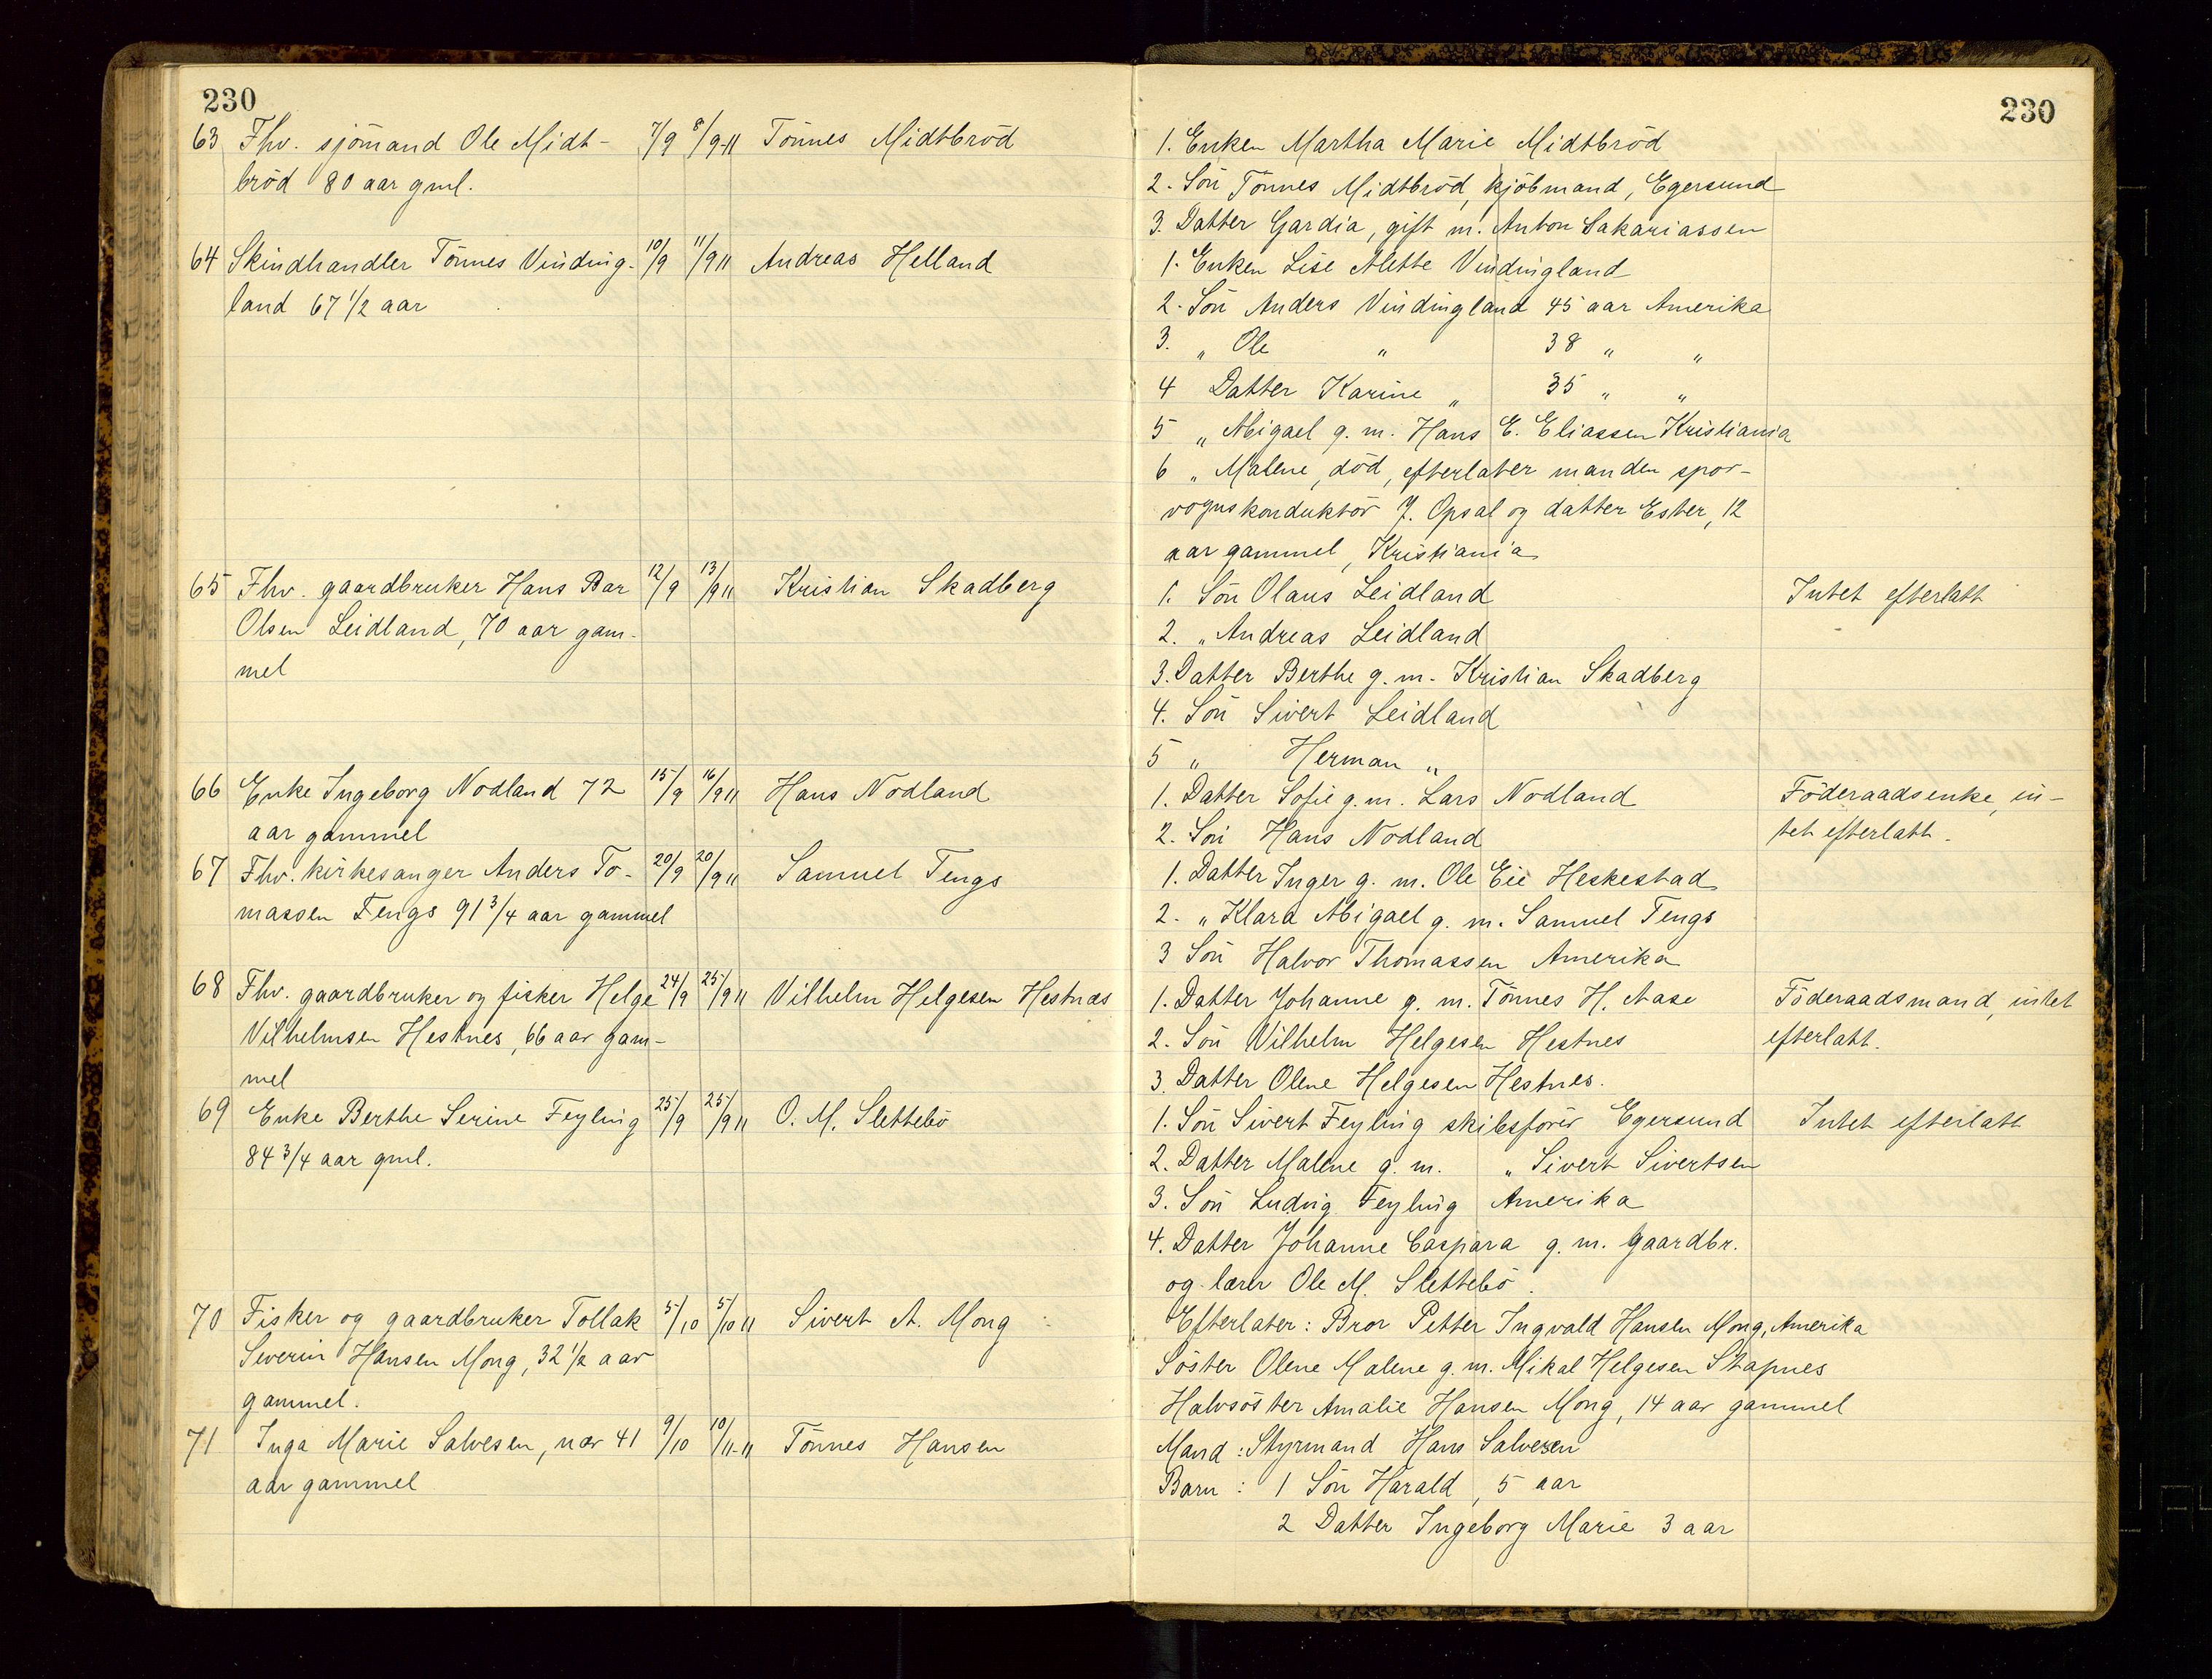 230
63 Fhv. sjömand Ole Midt- 7/9 8/9-11 Tönnes Midtbröd
bröd 80 aar gml.
64 Skindhandler Tönnes Vinding- 10/9 11/9 11 Andreas Helland
land 67 1/2 aar
65 Fhv. gaardbruker Hans Bar 12/9 13/9 11 Kristian Skadberg
Olsen Leidland, 70 aar gam-
mel
66 Enke Ingeborg Nodland 72 15/9 16/9 11 Hans Nodland
aar gammel
67 Fhv. kirkesanger Anders To- 20/9 20/9 11 Samuel Tengs
massen Tengs 91 3/4 aar gammel
68 Fhv. gaardbruker og fisker Helge 24/9 25/9 11 Vilhelm Helgesen Hestnæs
Vilhelmsen Hestnes, 66 aar gam-
mel
69 Enke Berthe Serine Feyling 25/9 25/9 11 O. M. Slettebö
84 3/4 aar gml.
70 Fisker og gaardbruker Tollak 5/10 5/10 11 Sivert A. Mong
Severin Hansen Mong, 32 1/2 aar
gammel.
71 Inga Marie Salvesen, nær 41 9/10 10/11-11 Tönnes Hansen
aar gammel
230
1. Enken Martha Marie Midtbröd
2. Sön Tönnes Midtbröd, kjöbmand, Egersund
3. Datter Gardia, gift m. Anton Sakariassen
1. Enken Lise Alette Vindingland
2. Sön Anders Vindingland 45 aar Amerika
3. " Ole " 38 " "
4 Datter Karine " 35 " "
5 " Abigael g. m. Hans E. Eliassen Kristiania
6 " Malene, död, efterlater manden spor-
vognskonduktör J. Opsal og datter Ester, 12
aar gammel, Kristiania
1. Sön Olaus Leidland Intet efterlatt
2. " Andreas Leidland
3. Datter Berthe g. m. Kristian Skadberg
4. Sön Sivert Leidland
5 " Herman "
1. Datter Sofie g. m. Lars Nodland Föderaadsenke, in-
2. Sön Hans Nodland tet efterlatt.
1. Datter Inger g. m. Ole Eie Heskestad
2. " Klara Abigael g. m. Samuel Tengs
3 Sön Halvor Thomassen Amerika
1. Datter Johanne g. m. Tönnes H. Aase Föderaadsmand, intet
2. Sön Vilhelm Helgesen Hestnes efterlatt.
3. Datter Olene Helgesen Hestnes.
1. Sön Sivert Feyling skibsförer Egersund Intet efterlatt
2. Datter Malene g. m. " Sivert Sivertsen
3. Sön Ludvig Feyling Amerika
4. Datter Johanne Caspara g. m. gaardbr.
og lærer Ole M. Slettebö.
Efterlater: Bror Petter Ingvald Hansen Mong, Amerika
Söster Olene Malene g. m. Mikal Helgesen Stapnes
Halvsöster Amalie Hansen Mong, 14 aar gammel
Mand: Styrmand Hans Salvesen
Barn: 1 Sön Harald, 5 aar
2 Datter Ingeborg Marie 3 aar